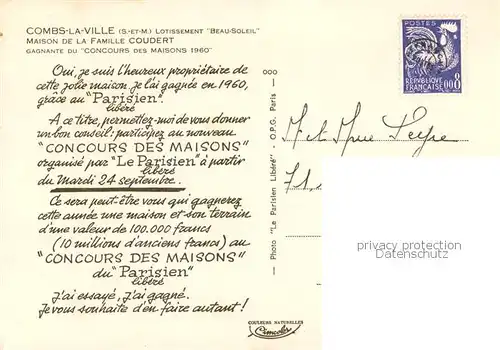 COMBS-LA-VILLE (S.-ET-M.) LOTISSEMENT "BEAU-SOLEIL"
MAISON DE LA FAMILLE COUDERT
GAGNANTE DU "CONCOURS DES MAISONS 1960"
Oui, je suis l'heureux propriétaire de
cette jolie maison, je l'ai gagnée en 1960,
grâce au "Parisien".
libéré
A ce titre, permettez-moi de vous donner
un bon conseil: participez au nouveau
"CONCOURS DES MAISONS"
organisé par "Le Parisien" à partir
libéré
du Mardi 24 septembre..
Ce sera peut-être vous qui gagnerez
cette année une maison et son terrain
d'une valeur de 100.000 francs
(10 millions d'anciens francs) au
"CONCOURS DES MAISONS"
du "Parisien"
libéré
J'ai essayé, j'ai gagné.
Je vous souhaite d'en faire autant!
Photo "Le Parisien Libéré" - O.P.G. Paris
COULEURS NATURELLES
Cimcolor
POSTES
RÉPUBLIQUE
FRANÇAISE
M et Mme
privacy protection
Datenschutz